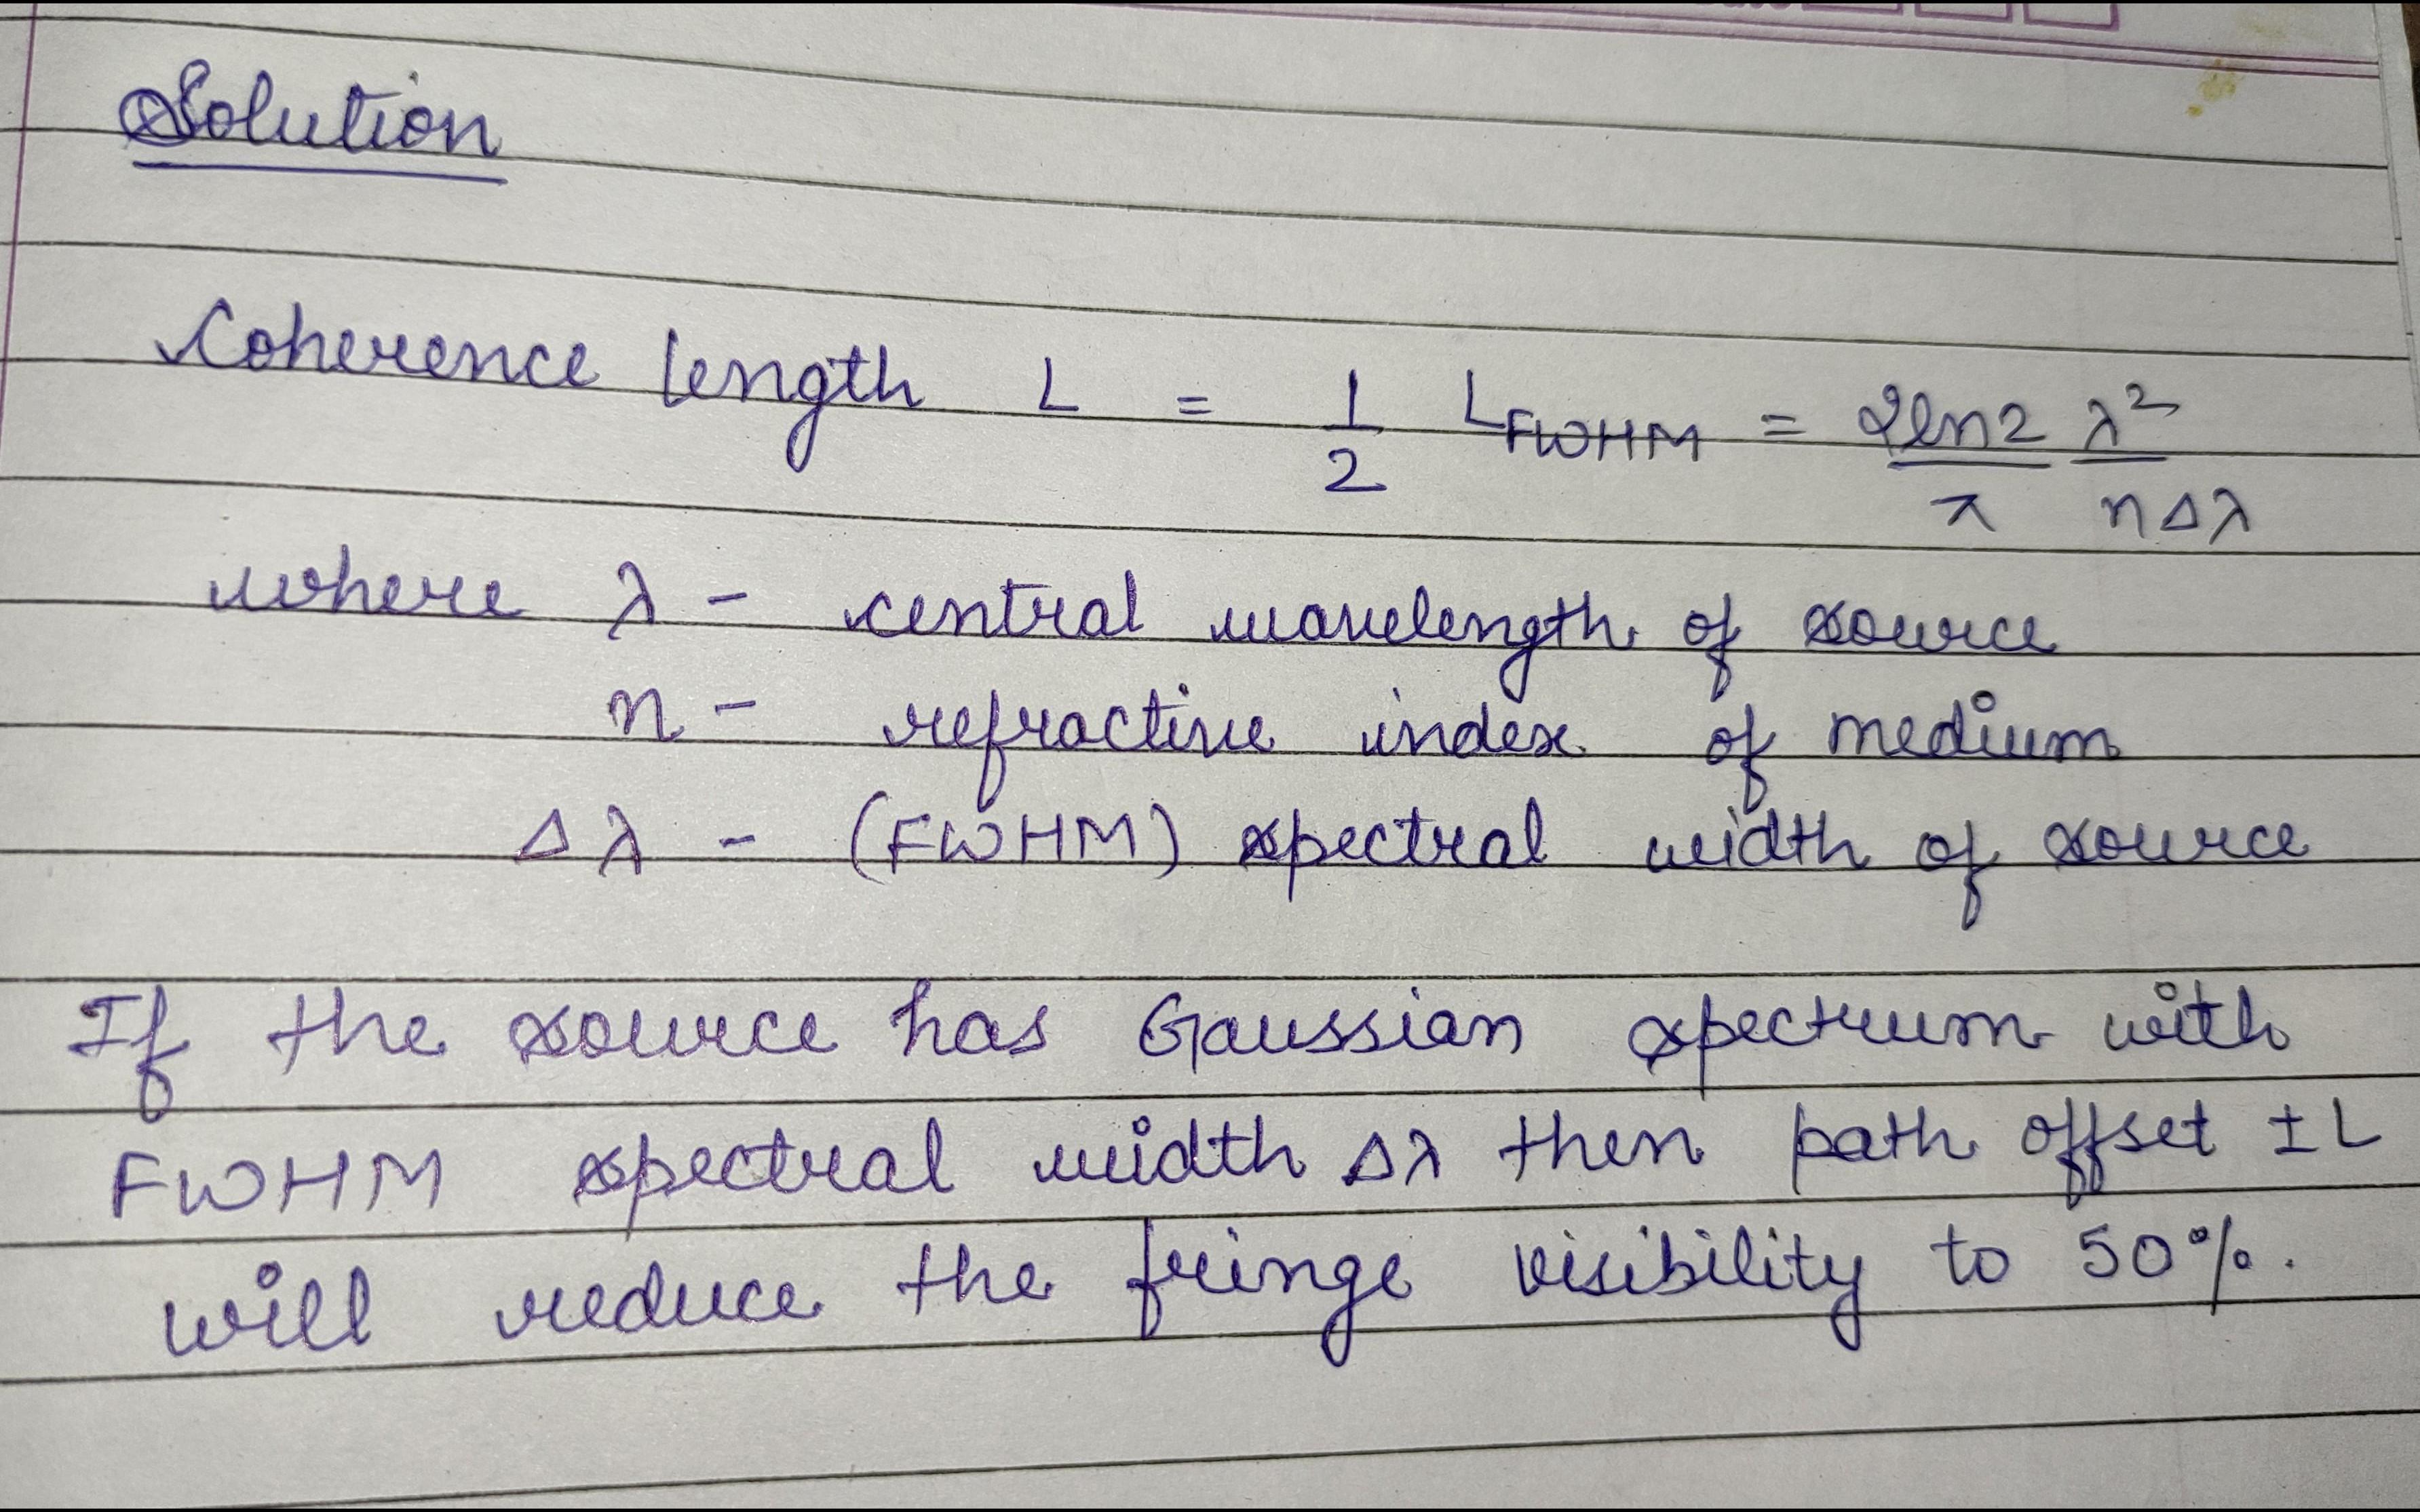 Solution
Coherence length L = 1/2 L_FWHM = 2ln2/π λ²/nΔλ
where λ - central wavelength of source
n - refractive index of medium
Δλ - (FWHM) spectral width of source
If the source has Gaussian spectrum with
FWHM spectral width Δλ then path offset ±L
will reduce the fringe visibility to 50%.